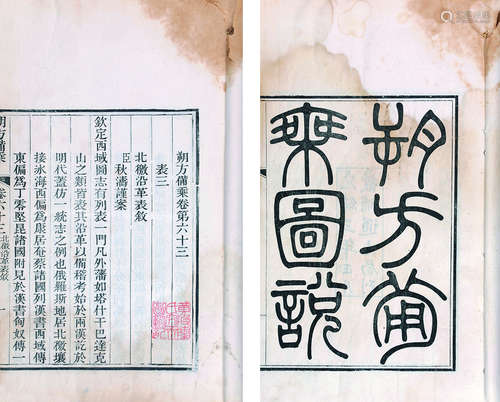 朔方備
乘圖說
朔方備乘卷第六十三
表三
北徼沿革表敘
臣秋濤謹案
欽定西域圖志有列表一門凡外藩如塔什干巴達克
山之類皆表其沿革以備稽考始於兩漢訖於
明代蓋仿一統志之例也俄羅斯地居北徼壤
接氷海西偏爲康居奄蔡諸國列漢書西域傳
東偏爲丁零堅昆諸國附見於漢書匈奴傳一
朔方備乘 卷六十三 北徼沿革表敘 一